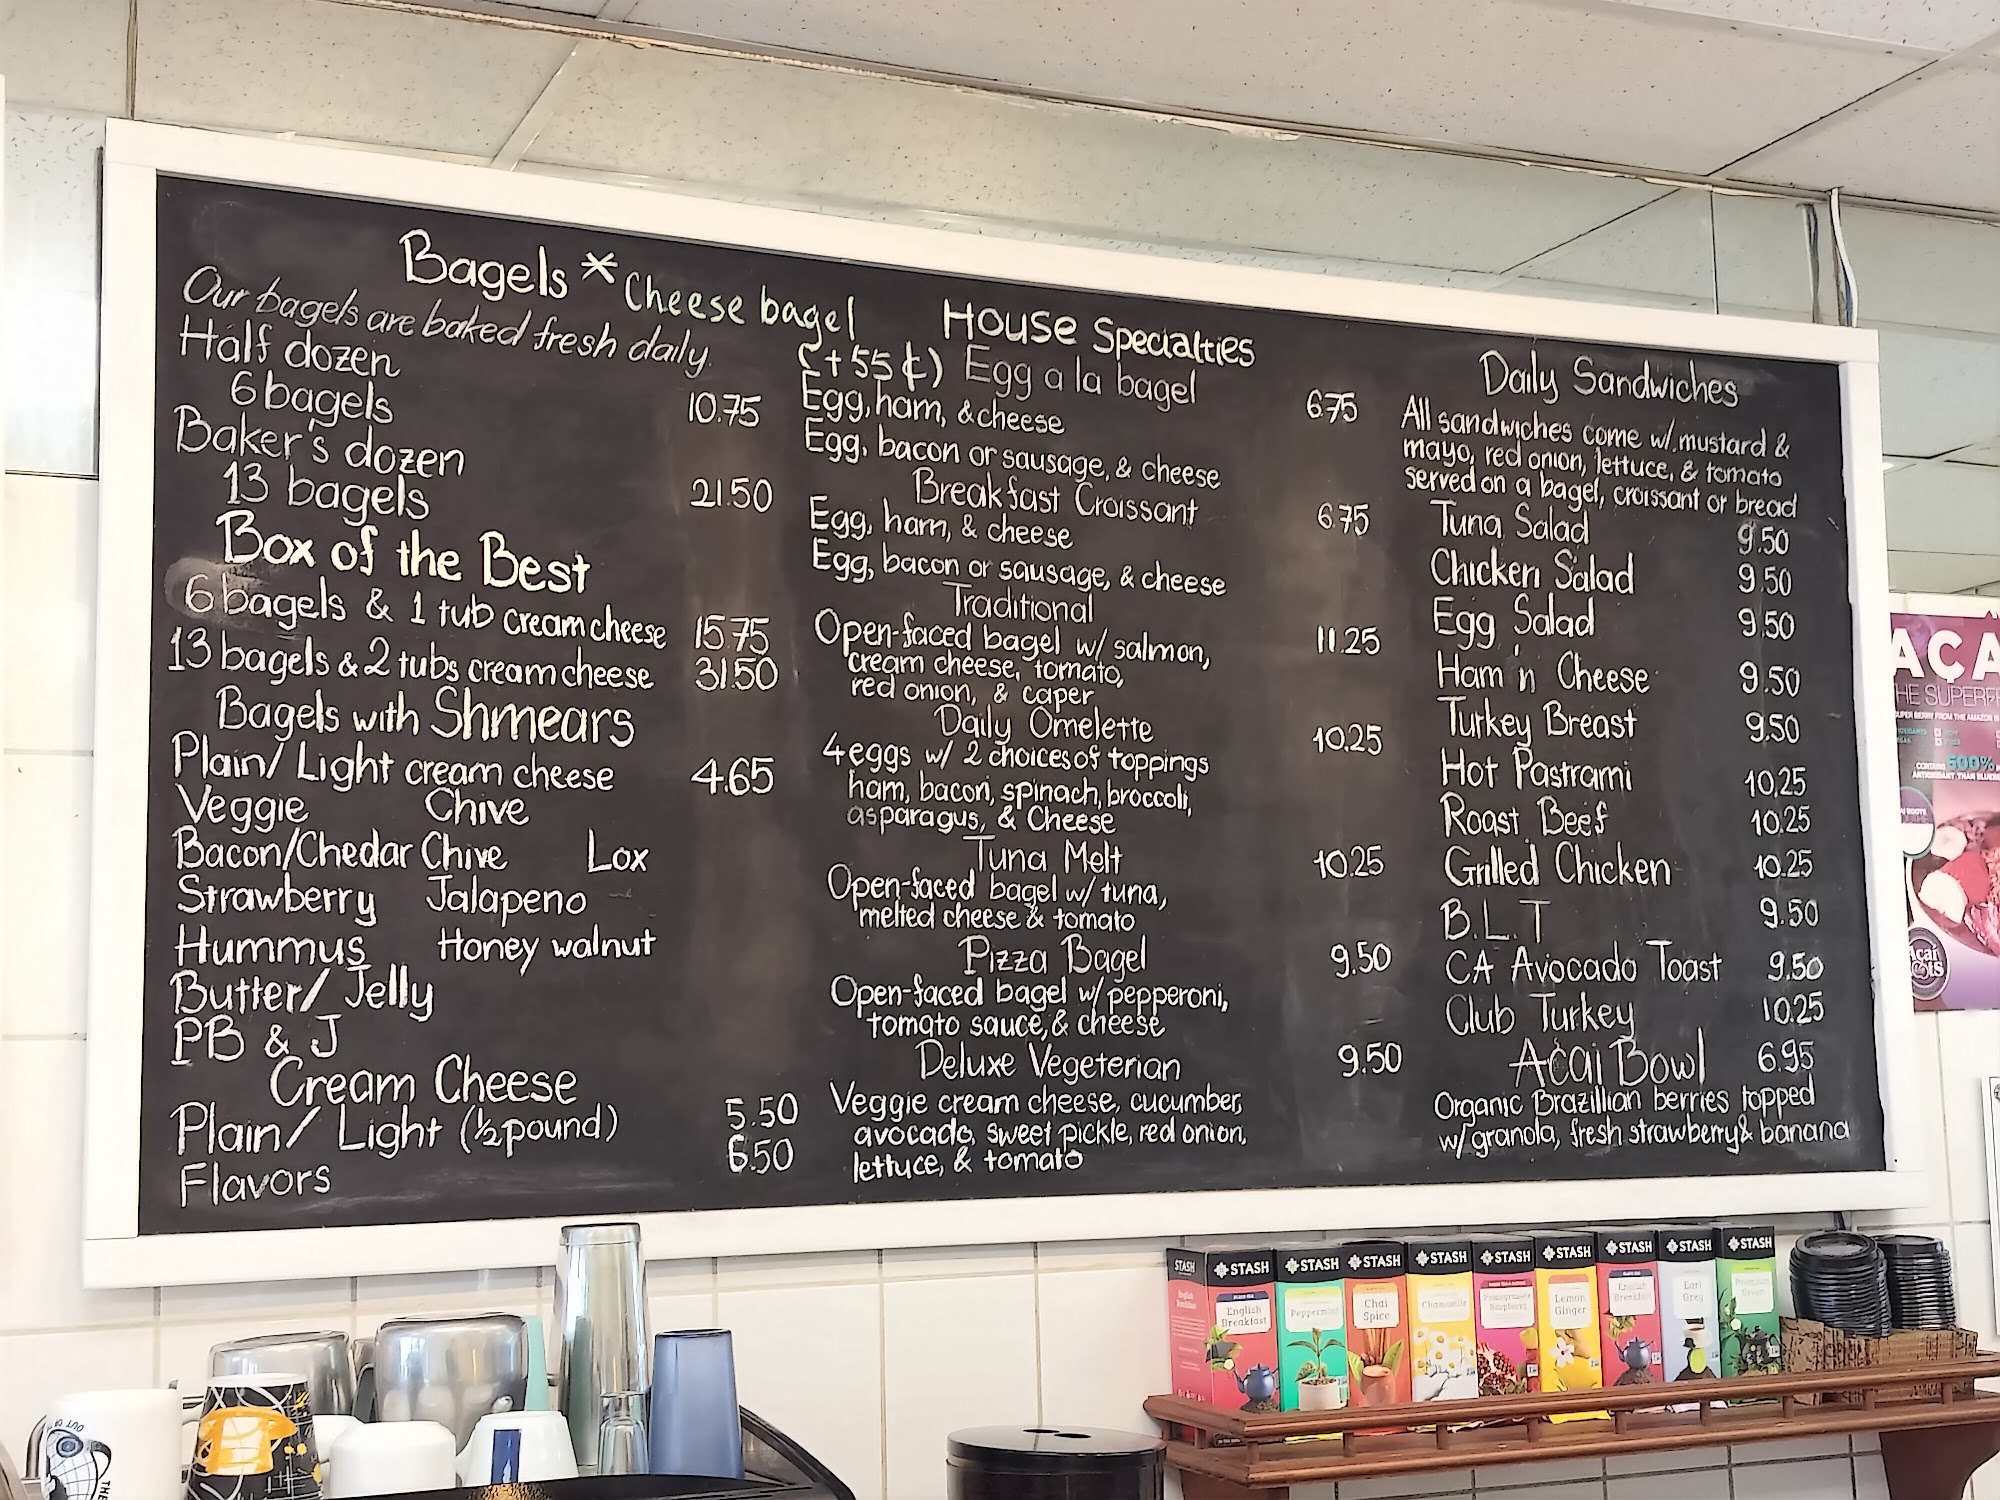 Bagels * Cheese bagel
(+55¢)
Our bagels are baked fresh daily.
Half dozen
6 bagels 10.75
Baker's dozen
13 bagels 21.50
Box of the Best
6 bagels & 1 tub cream cheese 15.75
13 bagels & 2 tubs cream cheese 31.50
Bagels with Shmears
Plain/Light cream cheese 4.65
Veggie Chive
Bacon/Chedar Chive Lox
Strawberry Jalapeno
Hummus Honey walnut
Butter/Jelly
PB & J
Cream Cheese
Plain/Light (½ pound) 5.50
Flavors 6.50
House Specialties
Egg a la bagel 6.75
Egg, ham, & cheese
Egg, bacon or sausage, & cheese
Breakfast Croissant 6.75
Egg, ham, & cheese
Egg, bacon or sausage, & cheese
Traditional 11.25
Open-faced bagel w/ salmon,
cream cheese, tomato,
red onion, & caper
Daily Omelette 10.25
4 eggs w/ 2 choices of toppings
ham, bacon, spinach, broccoli,
asparagus, & Cheese
Tuna Melt 10.25
Open-faced bagel w/ tuna,
melted cheese & tomato
Pizza Bagel 9.50
Open-faced bagel w/ pepperoni,
tomato sauce, & cheese
Deluxe Vegeterian 9.50
Veggie cream cheese, cucumber,
avocado, sweet pickle, red onion,
lettuce, & tomato
Daily Sandwiches
All sandwiches come w/ mustard &
mayo, red onion, lettuce, & tomato
served on a bagel, croissant or bread
Tuna Salad 9.50
Chicken Salad 9.50
Egg Salad 9.50
Ham 'n' Cheese 9.50
Turkey Breast 9.50
Hot Pastrami 10.25
Roast Beef 10.25
Grilled Chicken 10.25
B.L.T 9.50
CA Avocado Toast 9.50
Club Turkey 10.25
Açai Bowl 6.95
Organic Brazillian berries topped
w/ granola, fresh strawberry & banana
AÇA
HE SUPERFR
UPER BERRY FROM THE AMAZON
CONTAINS 500%
ANTIOXIDANT THAN BLUEB
STASH
English Breakfast
STASH
English Breakfast
STASH
Peppermint
STASH
Chai Spice
STASH
Chamomile
STASH
Pomegranate Raspberry
STASH
Lemon Ginger
STASH
English Breakfast
STASH
Earl Grey
STASH
Premium Green
OUT OF
THE